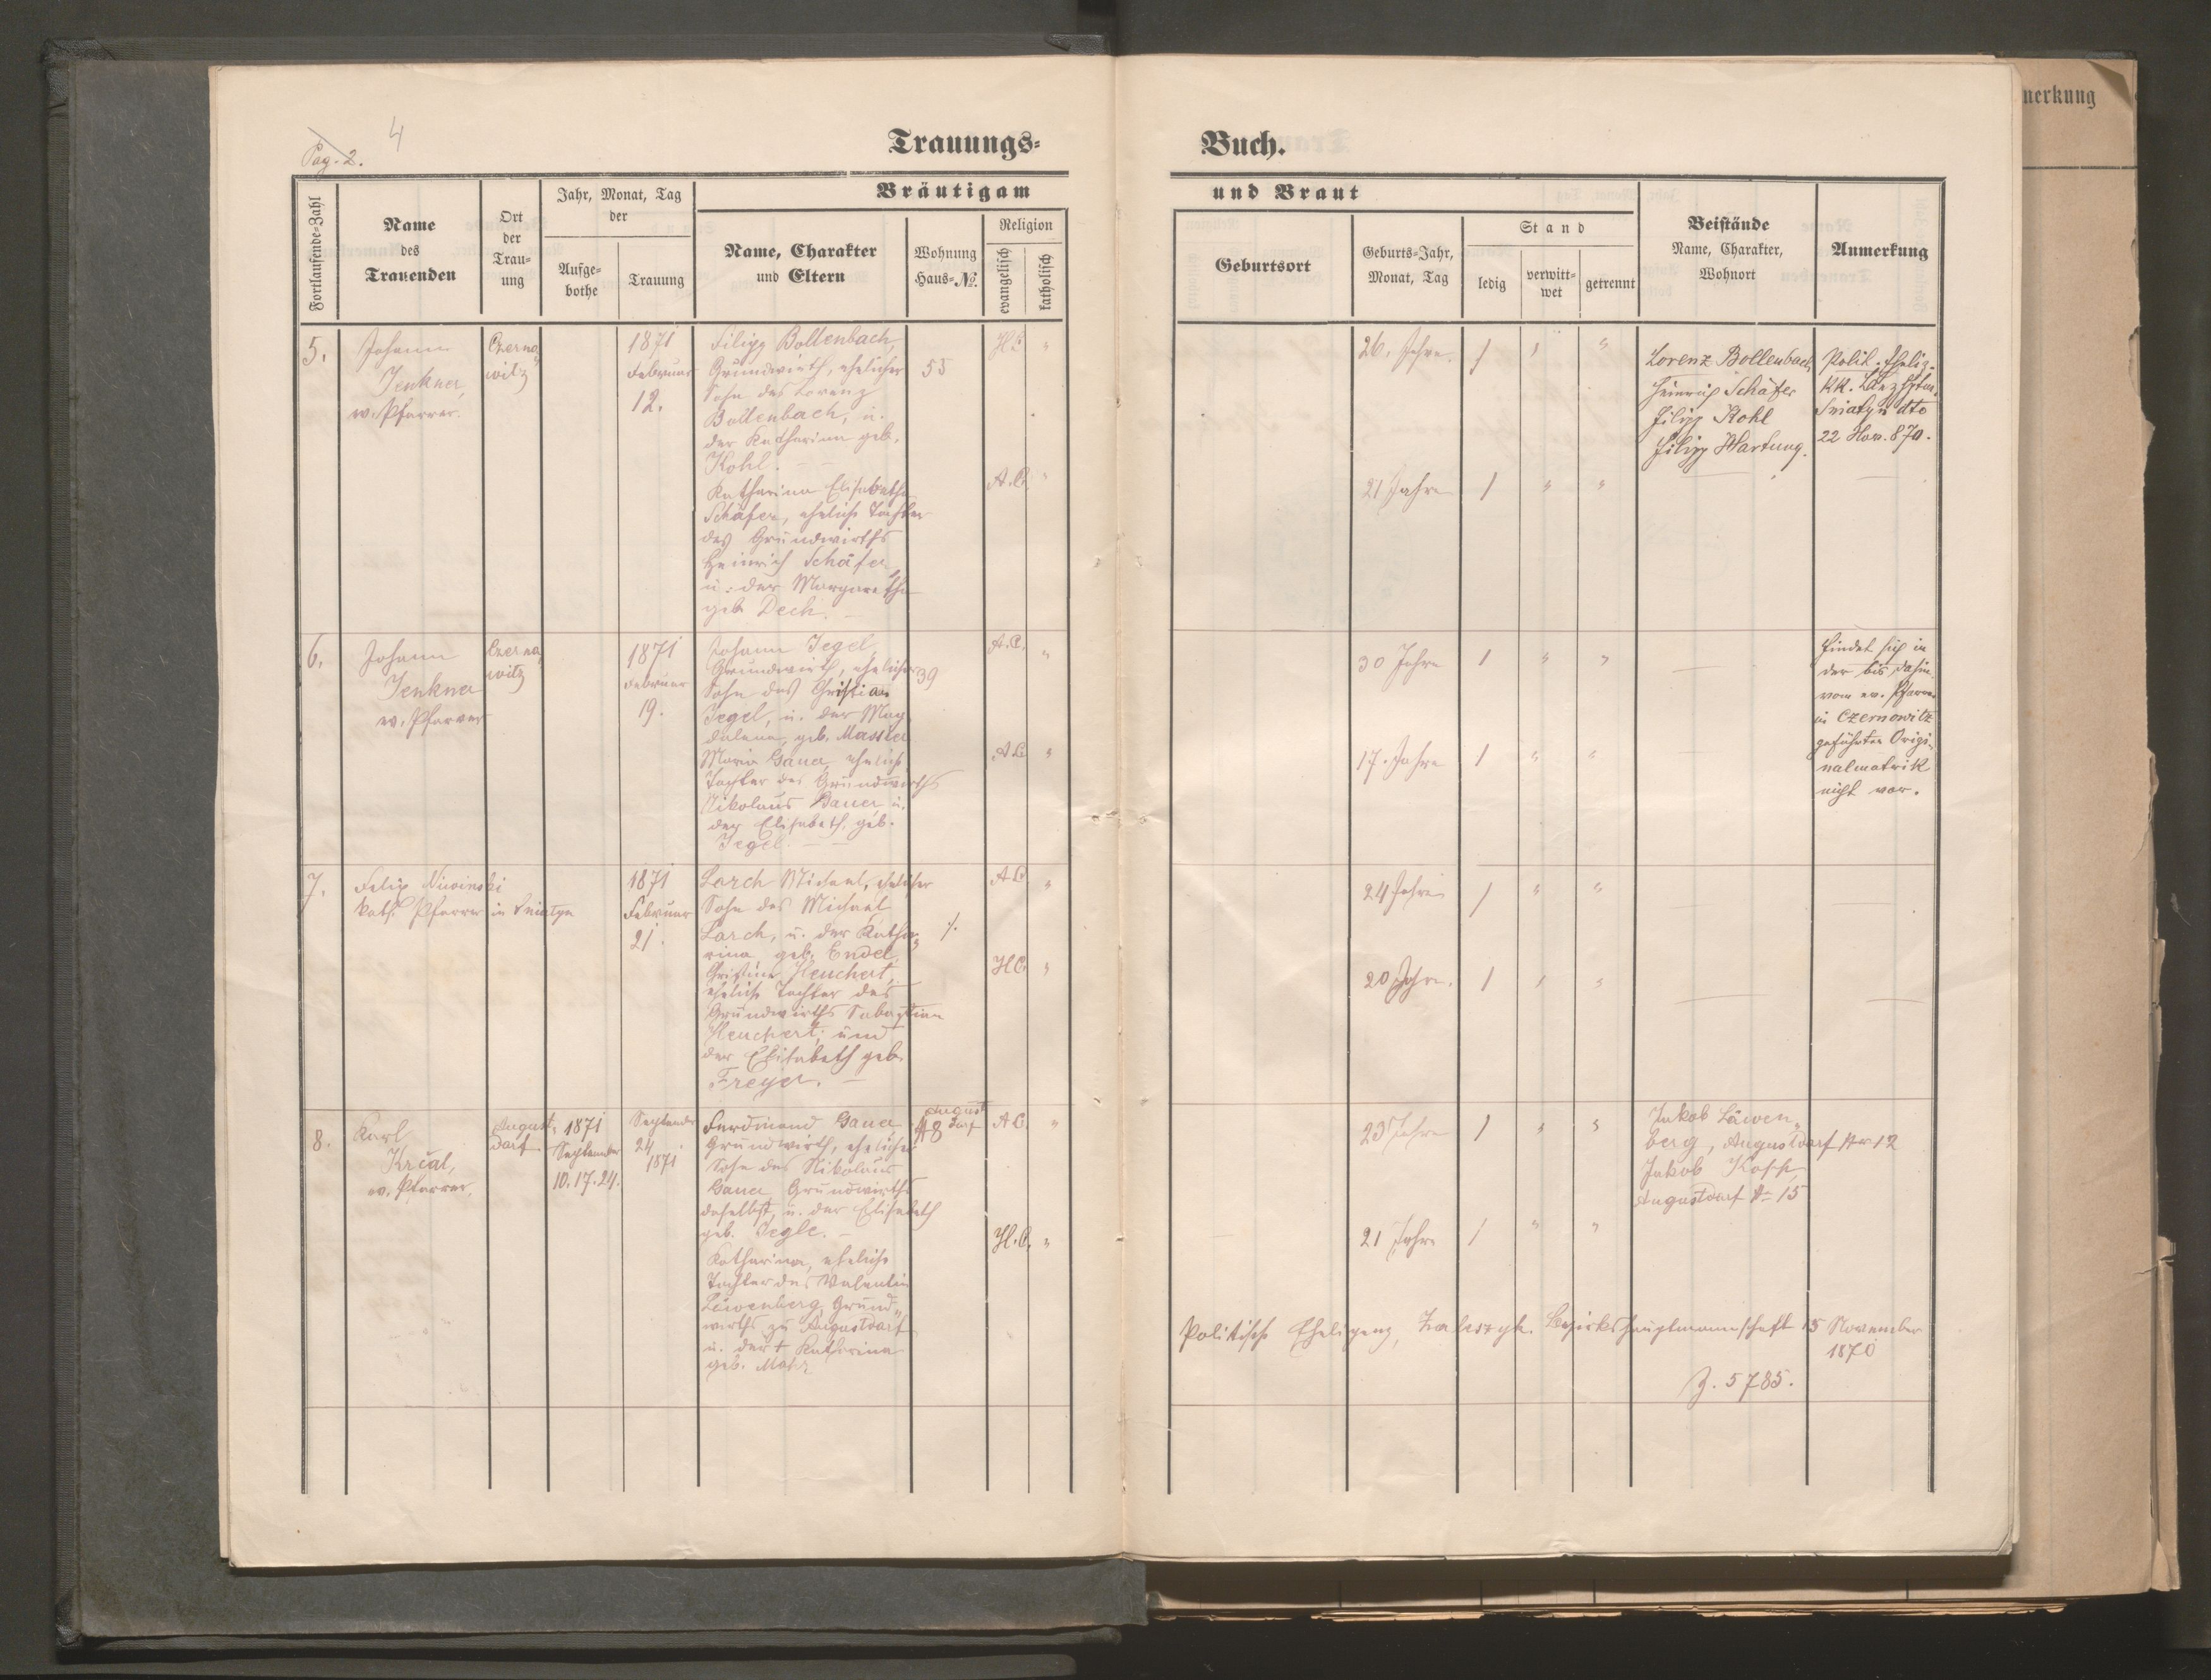 Pag. 2.
4
Trauungs-
Buch.
Fortlaufende-Zahl
Name
des
Trauenden
Ort
der
Trau-
ung
Jahr, Monat, Tag
der
Aufge-
bothe
Trauung
Bräutigam
Name, Charakter
und Eltern
Wohnung
Haus-№.
Religion
evangelisch
katholisch
und Braut
Geburtsort
Geburts-Jahr,
Monat, Tag
Stand
ledig
verwitt-
wet
getrennt
Beistände
Name, Charakter,
Wohnort
Anmerkung
nerkung
5.
Johann
Jenkner,
ev. Pfarrer.
Czerno
witz
1871
Februar
12.
Filipp Bollenbach,
Grundwirth, ehelicher
Sohn des Lorenz
Bollenbach, u.
der Katharina geb.
Kohl.
55
Katharina Elisabetha
Schäfer, eheliche Tochter
des Grundwirths
Heinrich Schäfer
u. der Margaretha
geb. Dech.
H.C.
"
A.C.
"
26. Jahre.
1 " "
21 Jahre
1 " "
Lorenz Bollenbach
Heinrich Schäfer
Filipp Kohl
Filipp Hartung.
Polit. Eheliz.
kk.
Sniatyn dto
22 Nov. 870.
6.
Johann
Jenkner
ev. Pfarrer
Czerno
witz
1871
Februar
19.
Johann Jegel,
Grundwirth, ehelicher
Sohn des Christian
Jegel, u. der Mag
dalena, geb. Massier
39
Maria Gauer, eheliche
Tochter des Grundwirths
Nikolaus Bauer u.
der Elisabeth, geb.
Jegel.
A.C.
"
A.C.
"
30 Jahre
1 " "
17. Jahre
1 " "
findet sich in
der bis dahin
vom ev. Pfarrer
in Czernowitz
geführten Origi-
nalmatrik
nicht vor.
7.
Felix Niwinski
kath. Pfarrer in Sniatyn
1871
Februar
21.
Lorch Michael, ehelicher
Sohn des Michael
Lorch, u. der Katha-
rina geb. Endel,
Christina Heuchert,
eheliche Tochter des
Grundwirths Sebastian
Heuchert, und
der Elisabeth geb.
Freyer.
A.C.
"
H.C.
"
24 Jahre
1 " "
20 Jahre.
1 " "
8.
Karl
Krčal,
ev. Pfarrer.
August-
dorf
1871
September
10. 17. 24.
September
24
1871
Ferdinand Gauer
Grundwirth, ehelicher
Sohn des Nikolaus
Gauer, Grundwirths
daselbst, u. der Elisabeth
geb. Jegle.
Katharina, eheliche
Tochter des Valentin
Löwenberg, Grund-
wirths zu Augustdorf
u. der † Katharina
geb. Mohr
August
dorf
№ 8
A.C.
"
H.C.
"
23 Jahre
1 " "
21 Jahre
1 " "
Jakob Löwen-
berg, Augustdorf Nr 12
Jakob
Augustdorf № 15
Politische Ehelizenz, Bezirkshauptmannschaft 15 November
1870
Z. 5785.